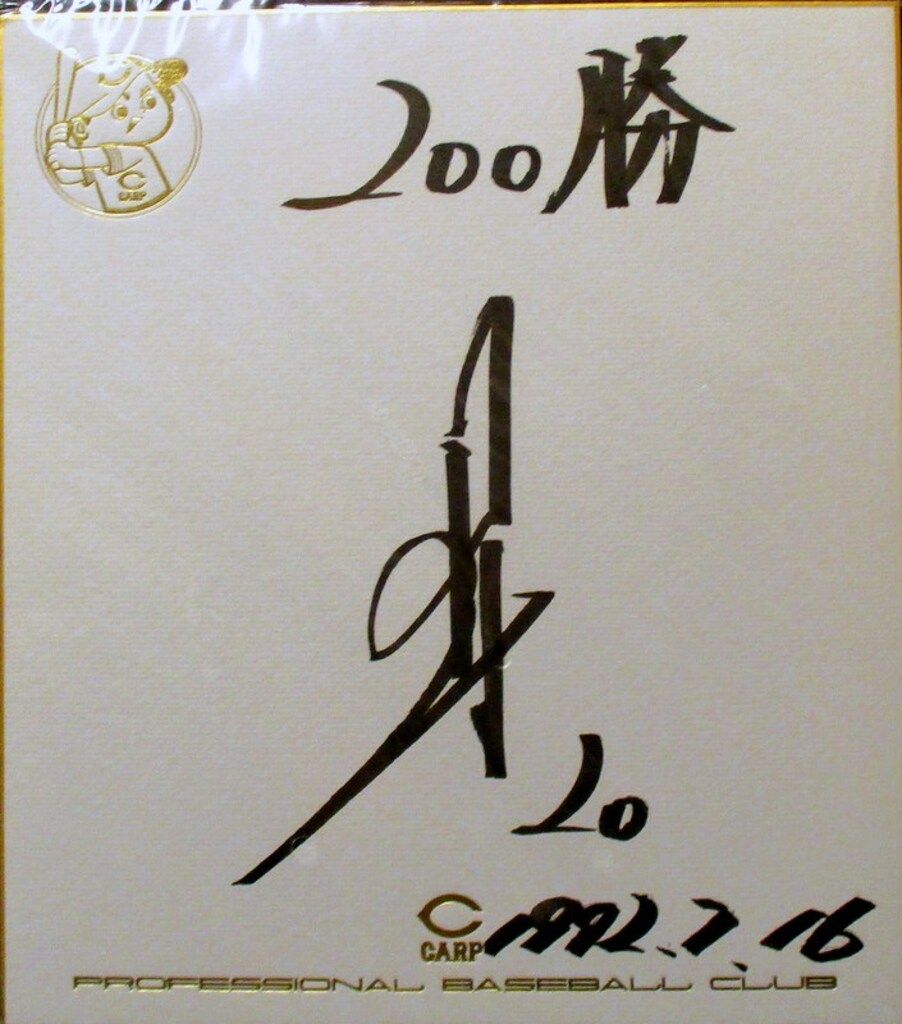 C
CARP
200勝
20
C
CARP
1992.7.16
PROFESSIONAL BASEBALL CLUB